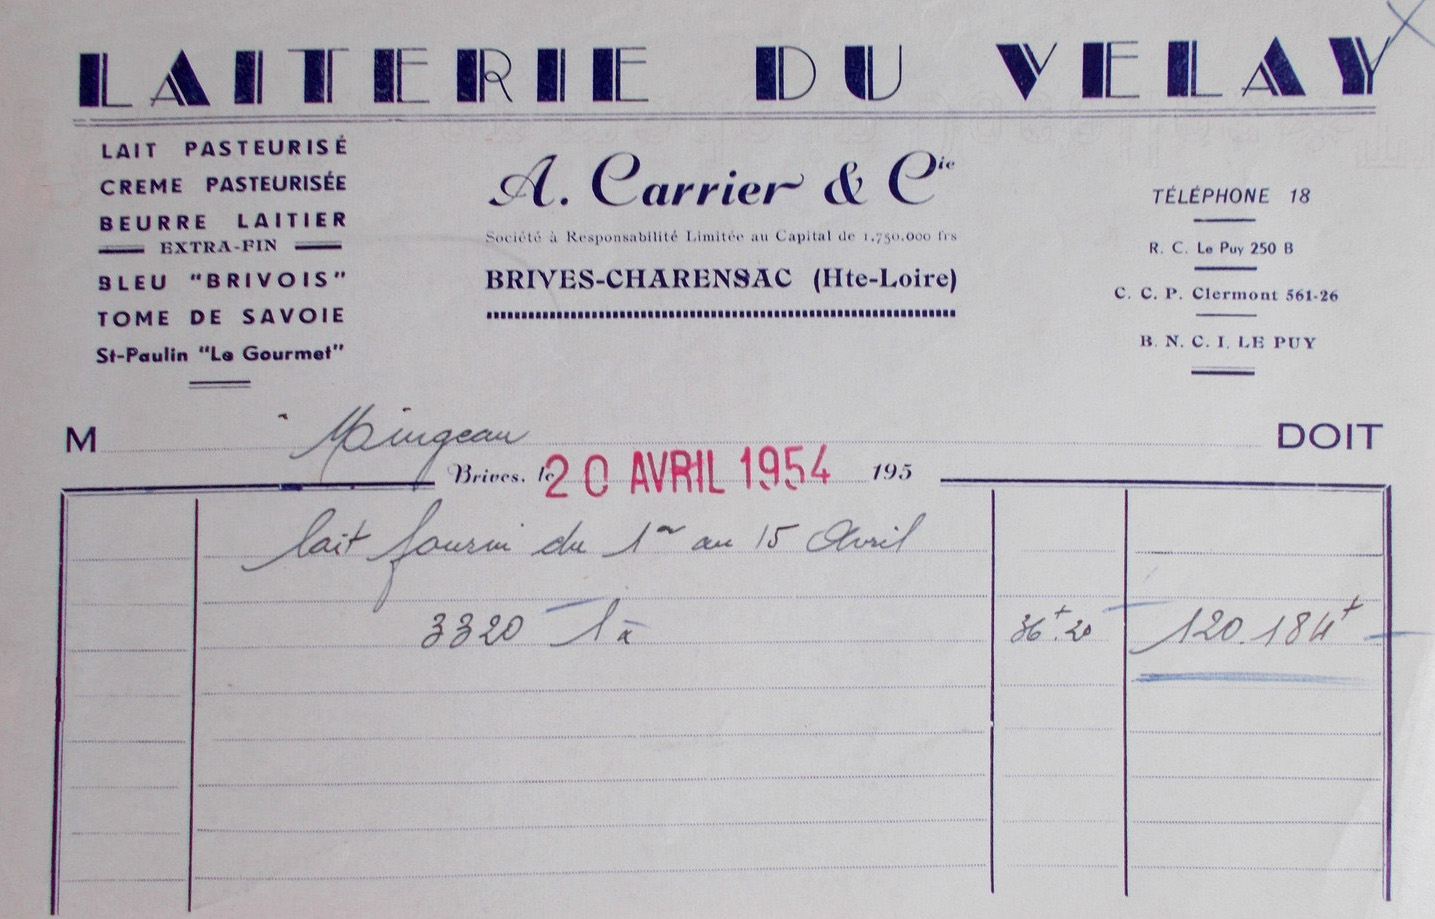 LAITERIE DU VELAY
LAIT PASTEURISÉ
CREME PASTEURISÉE
BEURRE LAITIER
EXTRA-FIN
BLEU "BRIVOIS"
TOME DE SAVOIE
St-Paulin "Le Gourmet"
A. Carrier & Cie
Société à Responsabilité Limitée au Capital de 1.750.000 frs
BRIVES-CHARENSAC (Hte-Loire)
TÉLÉPHONE 18
R. C. Le Puy 250 B
C. C. P. Clermont 561-26
B. N. C. I. LE PUY
M Mingeau DOIT
Brives, le 20 AVRIL 1954 195
lait fourni du 1er au 15 Avril
3320 l à 36f.20 120.184f